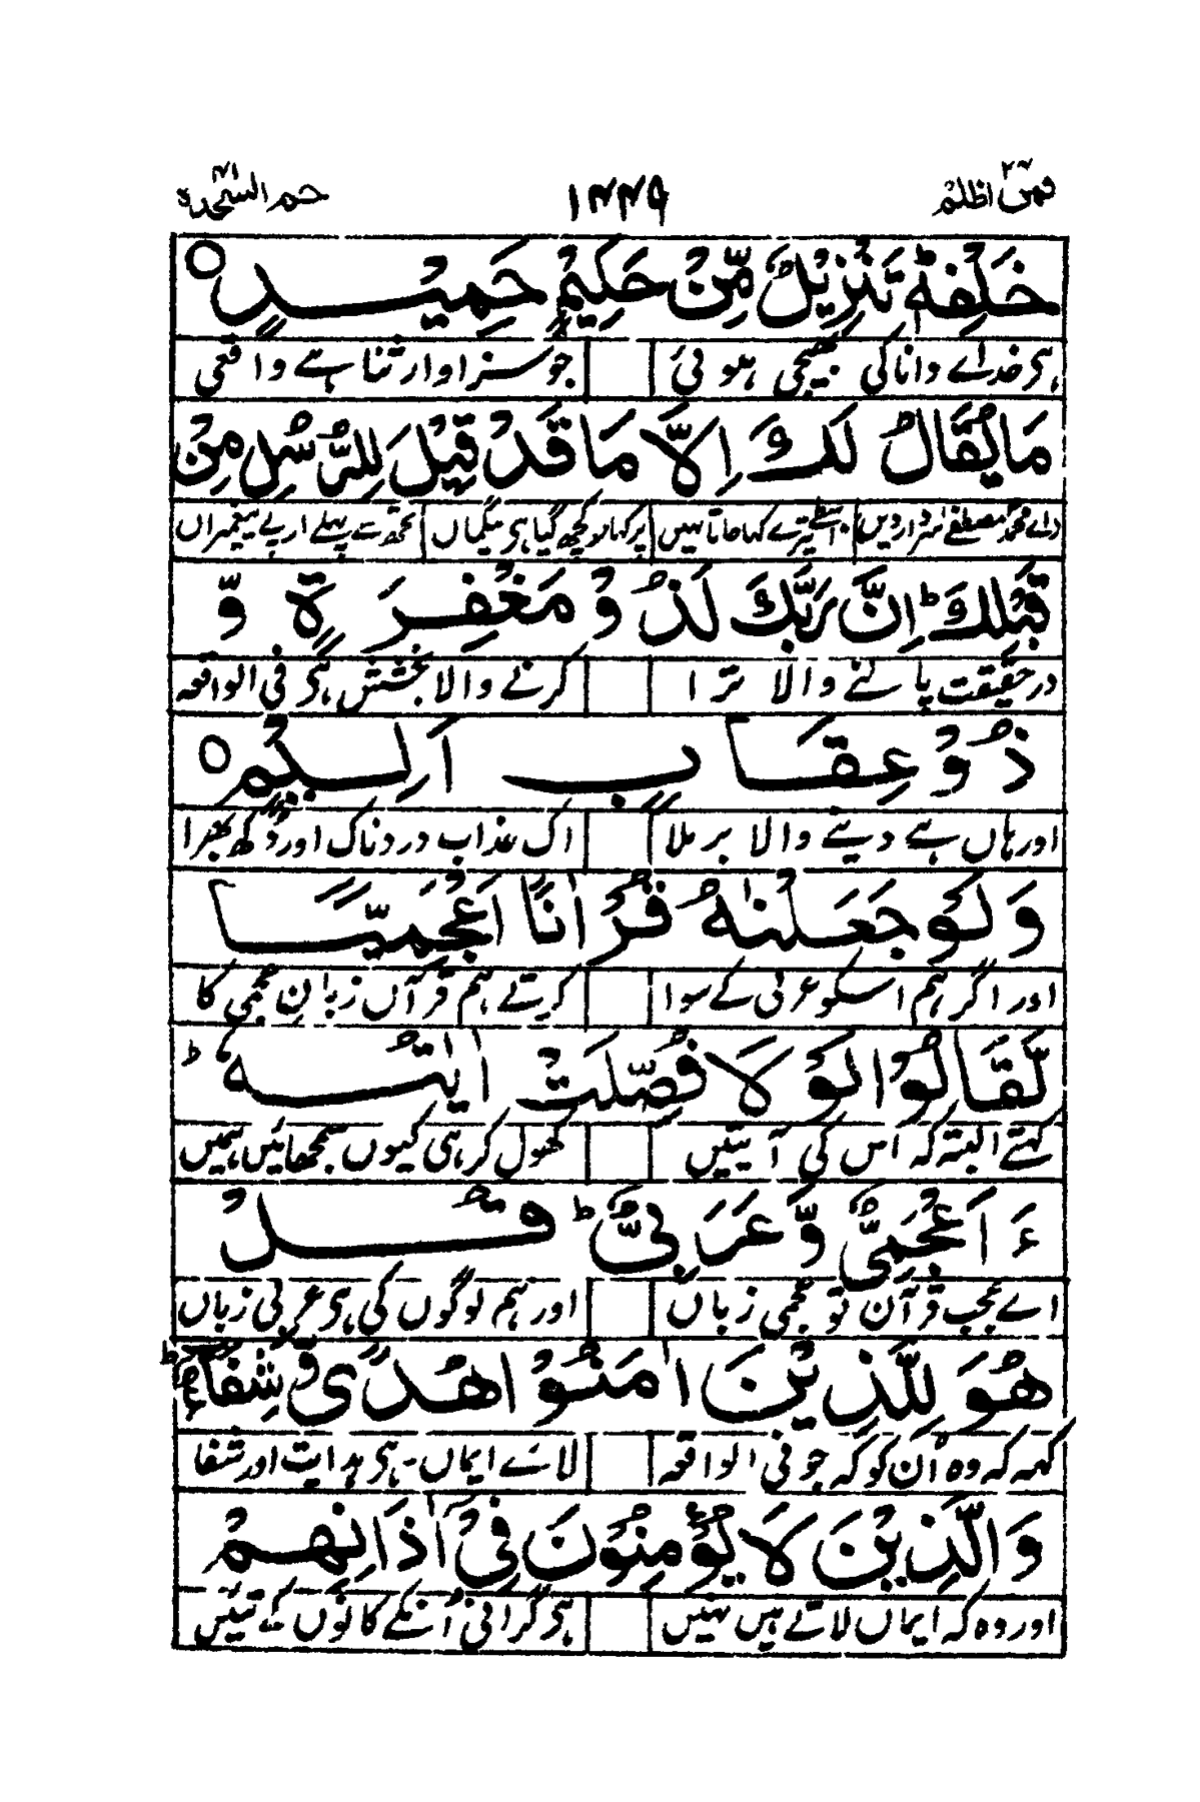 فمن اظلم ۲۴ ۱۴۴۹ حم السجدة ۴۱
خَلْفِهٖ ؕ تَنْزِيْلٌ مِّنْ حَكِيْمٍ حَمِيْدٍ ○
ہے خداے دانا کی بھیجی ہوئی جو سزاوار ثنا ہے واقعی
مَا يُقَالُ لَكَ اِلَّا مَا قَدْ قِيْلَ لِلرُّسُلِ مِنْ
اے محمد مصطفےٰ سردار دیں واسطے تیرے کہا جاتا نہیں پر کہا جو کچھ گیا ہے بیگماں تجھ سے پہلے از پے پیغمبراں
قَبْلِكَ ؕ اِنَّ رَبَّكَ لَذُوْ مَغْفِرَةٍ وَّ
در حقیقت پالنے والا ترا کرنے والا بخشش ہے فی الواقعہ
ذُوْ عِقَابٍ اَلِيْمٍ ○
اور ہاں ہے دینے والا برملا اک عذاب دردناک اور دکھ بھرا
وَلَوْ جَعَلْنٰهُ قُرْاٰنًا اَعْجَمِيًّا
اور اگر ہم اسکو عربی کے سوا کرتے ہم قرآں زبان عجمی کا
لَّقَالُوْا لَوْ لَا فُصِّلَتْ اٰيٰتُهٗ ؕ
کہتے البتہ کہ اس کی آیتیں کھول کر ہی کیوں نہ سمجھائیں ہمیں
ءَاَعْجَمِىٌّ وَّعَرَبِىٌّ ؕ قُلْ
اے عجب قرآن تو عجمی زباں اور ہم لوگوں کی ہے عربی زباں
هُوَ لِلَّذِيْنَ اٰمَنُوْا هُدًى وَّشِفَآءٌ ؕ
کہہ کہ وہ اُن کو کہ جو فی الواقعہ لائے ایماں ہے ہدایت اور شفا
وَالَّذِيْنَ لَا يُؤْمِنُوْنَ فِىْٓ اٰذَانِهِمْ
اور وہ کہ ایماں لاتے ہیں نہیں ہے گرانی اُنکے کانوں کے تئیں